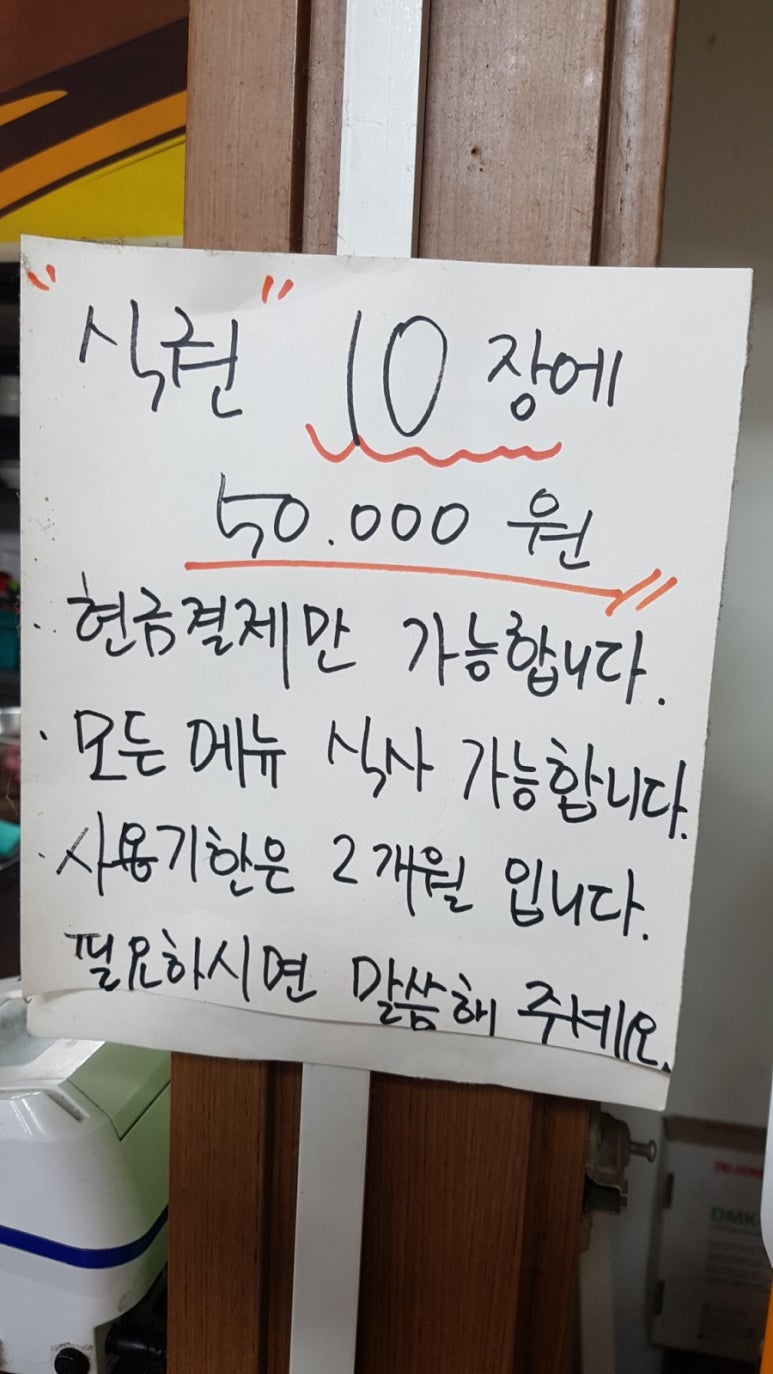 "식권" 10장에
50.000 원
· 현금결제만 가능합니다.
· 모든 메뉴 식사 가능합니다.
· 사용기한은 2개월 입니다.
필요하시면 말씀해 주세요.
DMK